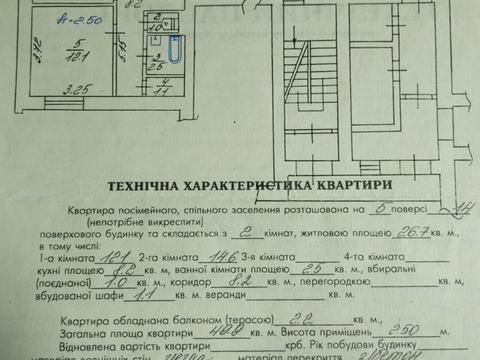 h=2.50
2
1.0
5
12.1
3.42
5.15
3
2.5
3.25
4
1.1
ТЕХНІЧНА ХАРАКТЕРИСТИКА КВАРТИРИ
Квартира посімейного, спільного заселення розташована на 5 поверсі 14
(непотрібне викреслити)
поверхового будинку та складається з 2 кімнат, житловою площею 26.7 кв. м.,
в тому числі:
1-а кімната 12.1 2-га кімната 14.6 3-я кімната 4-та кімната
кухні площею 8.2 кв. м, ванної кімнати площею 2.5 кв. м., вбиральні
(поєднаної) 1.0 кв. м., коридор 8.2 кв. м., перегородкою кв. м.,
вбудованої шафи 1.1 кв. м. веранди кв. м.,
Квартира обладнана балконом (терасою) 2.2 кв. м.,
Загальна площа квартири кв. м. Висота приміщень 2.50 м.
Відновлена вартість квартири крб. Рік побудови будинку
матеріал зовнішніх стін матеріал перекриття бетон